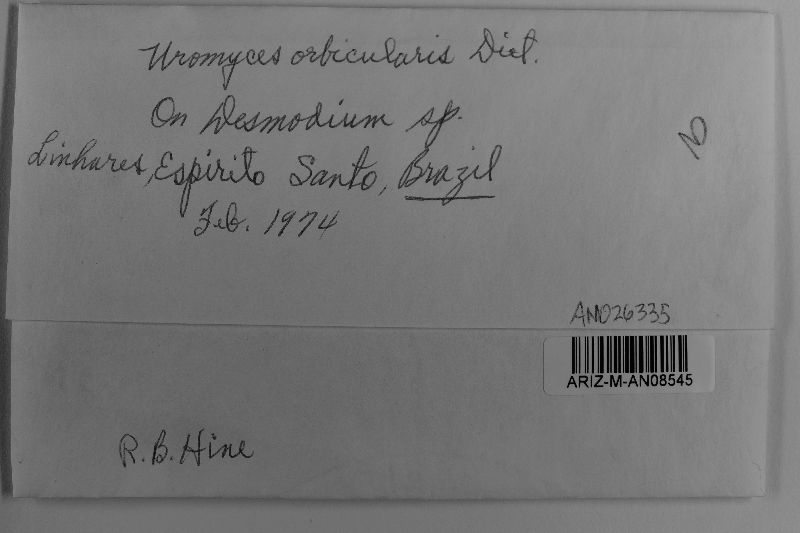 Uromyces orbicularis Diet.
On Desmodium sp.
Linhares, Espirito Santo, Brazil
Feb. 1974
AN026335
ARIZ-M-AN08545
R. B. Hine